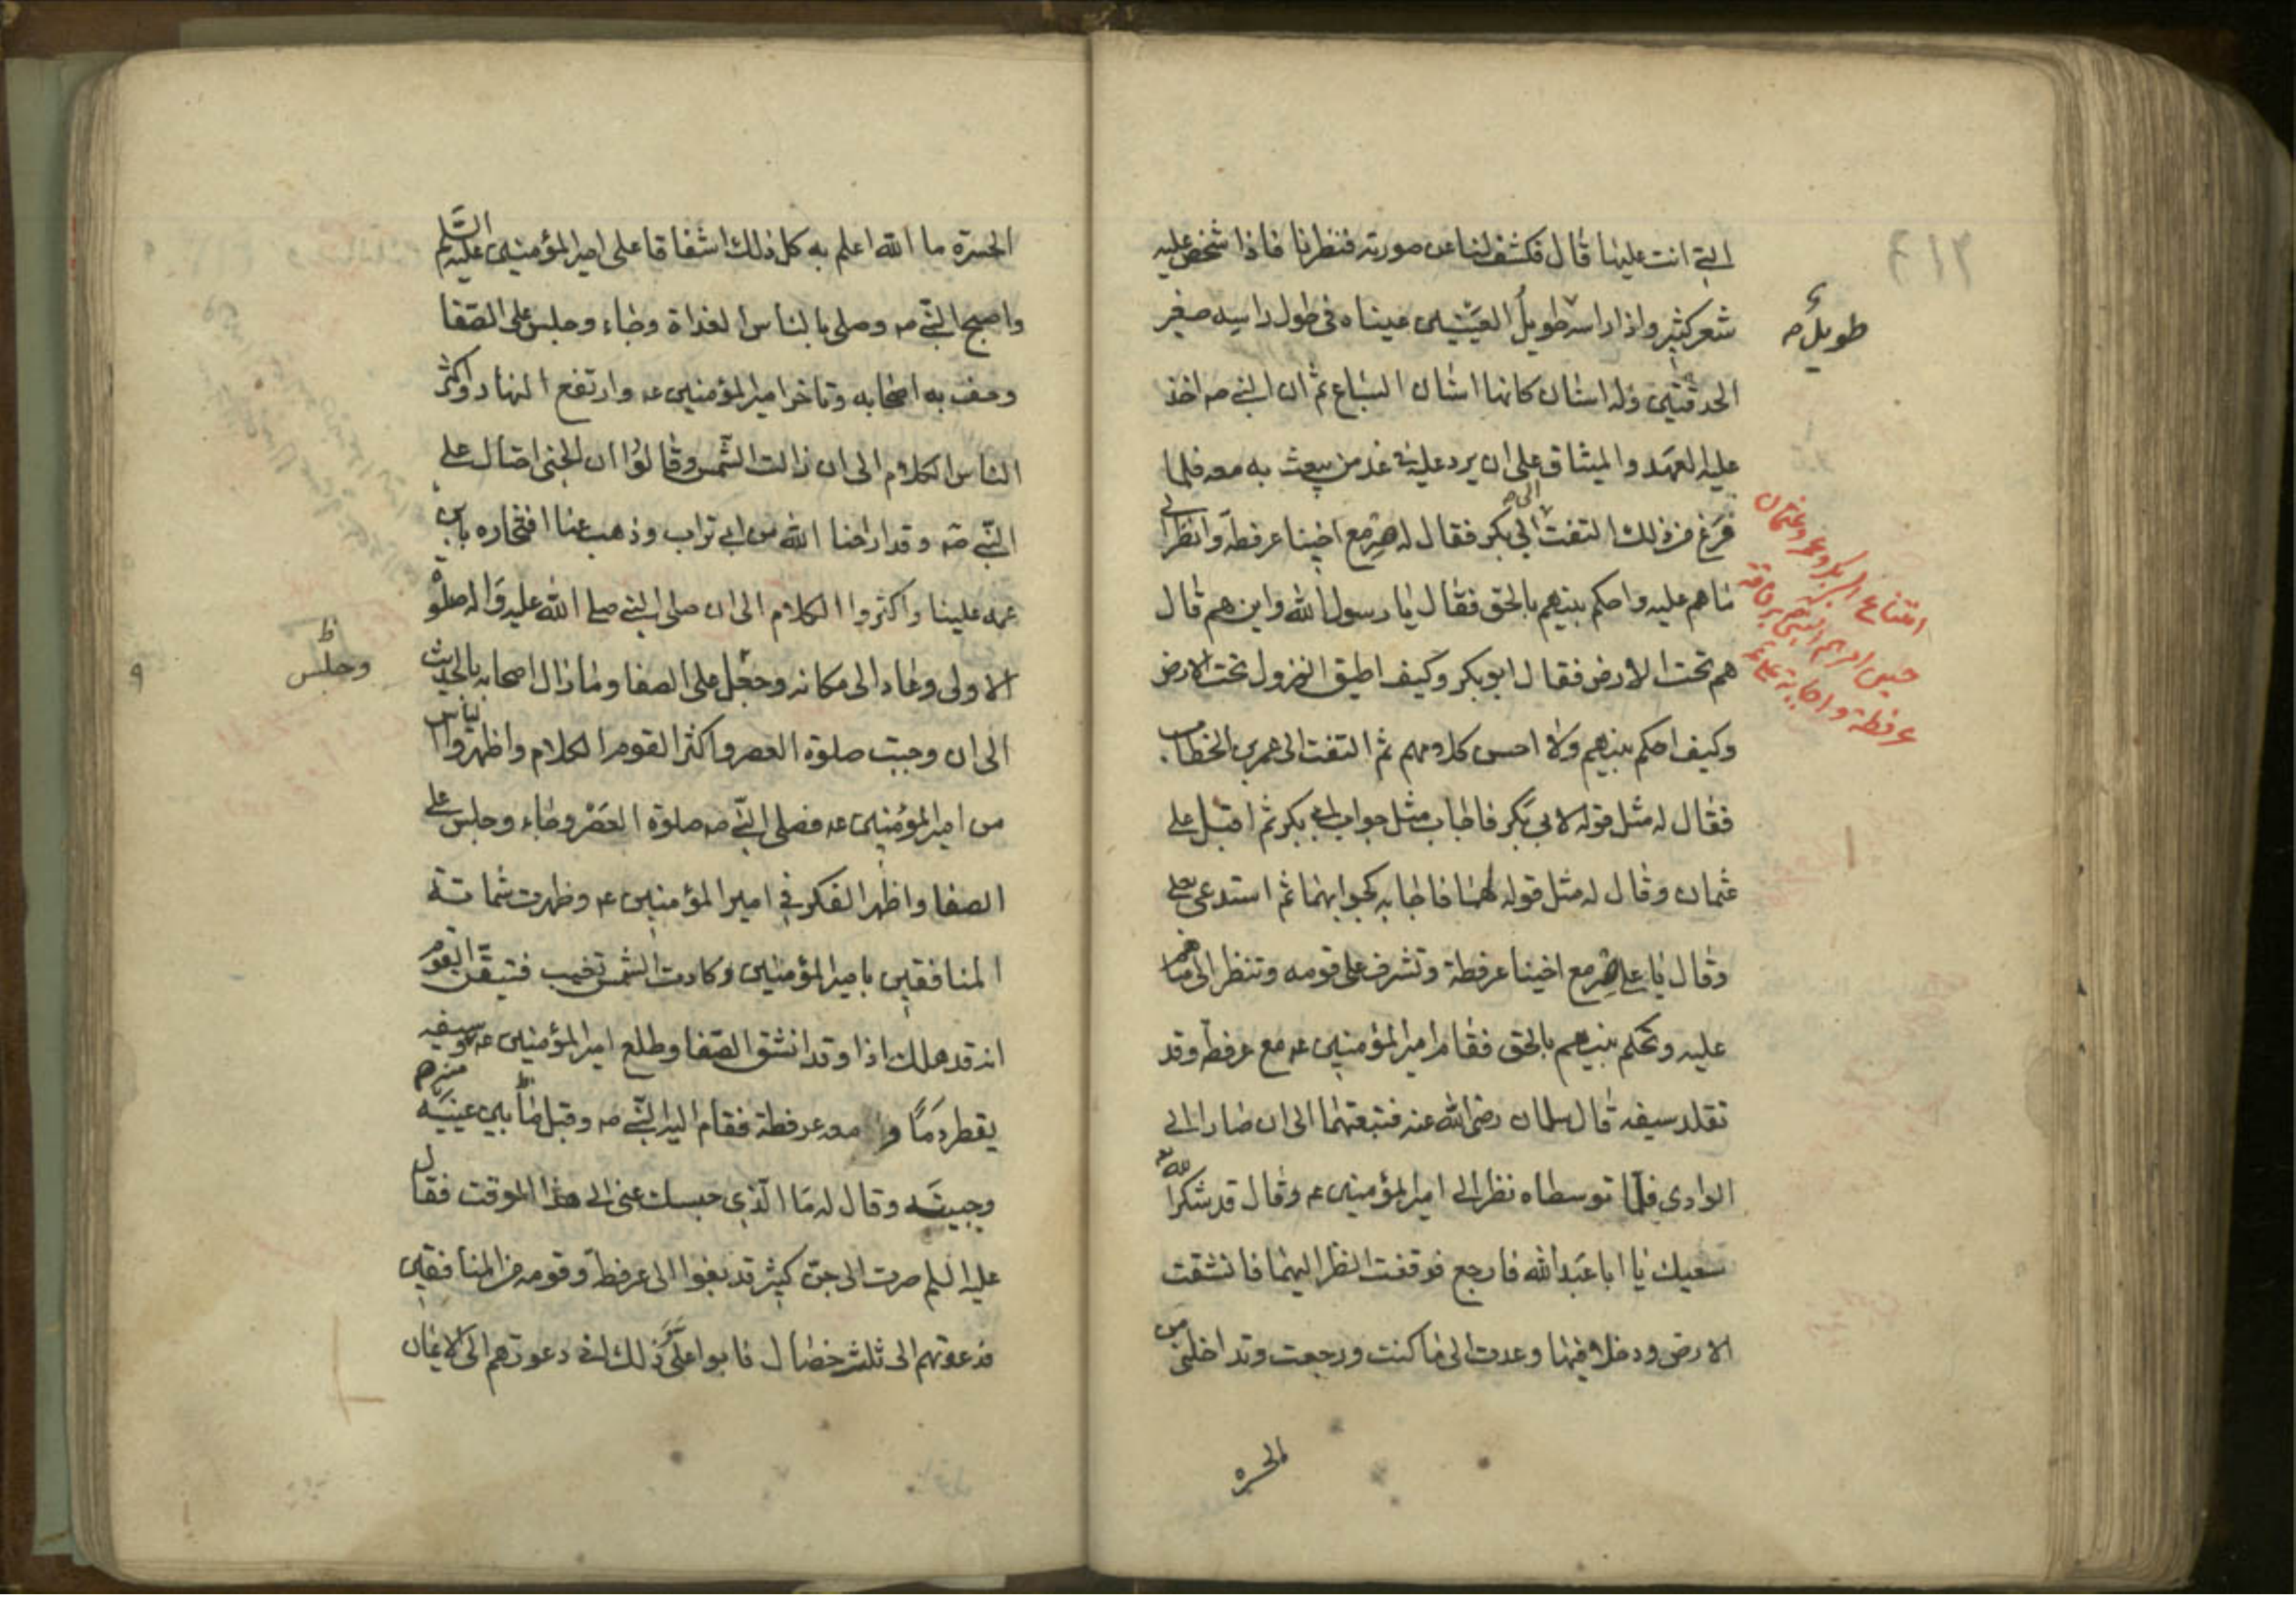 التي انت عليها قال فكشف لنا عن صورته فنظرنا فاذا شخص عليه
شعر كثير واذا راسه طويل العينين عيناه فى طول راسه صغير
طويل ص
الحدقتين وله اسنان كانها اسنان السباع ثم ان النبي صه اخذ
عليه العهد والميثاق على ان يرد عليه في غد من يبعث به معه فلما
فرغ من ذلك التفت الى ابي بكر فقال له صر مع اخينا عرفطة وانظر الى
ما هم عليه واحكم بينهم بالحق فقال يا رسول الله واين هم قال
امتناع ابي بكر وعمر وعثمان
حين امرهم النبي ص برفاقة
عرفطة واجابة علي ع
هم تحت الارض فقال ابو بكر وكيف اطيق النزول تحت الارض
وكيف احكم بينهم ولا احسن كلامهم ثم التفت الى عمر بن الخطاب
فقال له مثل قوله لابي بكر فاجاب مثل جواب ابي بكر ثم اقبل على
عثمان وقال له مثل قوله لهما فاجابه كجوابهما ثم استدعى بعلي
وقال يا علي صر مع اخينا عرفطة وتشرف على قومه وتنظر الى ما هم
عليه وتحكم بينهم بالحق فقام امير المؤمنين عه مع عرفطة وقد
تقلد سيفه قال سلمان رضى الله عنه فتبعتهما الى ان صارا الى
الوادي فلما توسطاه نظر الى امير المؤمنين ع وقال قد شكر الله
سعيك يا ابا عبد الله فارجع فوقفت انظر اليهما فانشقت
الارض ودخلا فيها وعدت الى ما كنت ورجعت وتداخلني من
الحسرة
الحسرة ما الله اعلم به كل ذلك اشفاقا على امير المؤمنين عليه السلم
واصبح النبي صه وصلى بالناس الغداة وجاء وجلس على الصفا
وحف به اصحابه وتاخر امير المؤمنين عه وارتفع النهار واكثر
الناس الكلام الى ان زالت الشمس وقالوا ان الجنى احتال على
النبي صه وقد اراحنا الله من ابي تراب وذهب عنا افتخاره بابن
عمه علينا واكثروا الكلام الى ان صلى النبي صلى الله عليه واله صلوة
الاولى وعاد الى مكانه وجعل على الصفا وما زال اصحابه بالحديث
وجلس ظ
الى ان وجبت صلوة العصر واكثر القوم الكلام واظهروا الياس
من امير المؤمنين عه فصلى النبي صه صلوة العصر وجاء وجلس على
الصفا واظهر الفكر في امير المؤمنين ع وظهرت شماتة
المنافقين بامير المؤمنين وكادت الشمس تغيب فتيقن القوم
انه قد هلك اذا وقد انشق الصفا وطلع امير المؤمنين عه وسيفه
يقطر دما ومعه عرفطة فقام اليه النبي صه وقبل ما بين عينيه
وجبينيه وقال له ما الذي حبسك عني الى هذا الوقت فقال
عليه السلم صرت الى جن كثير قد بغوا الى عرفطة وقومه من المنافقين
فدعوتهم الى ثلث خصال فابوا علي ذلك اني دعوتهم الى الايمان